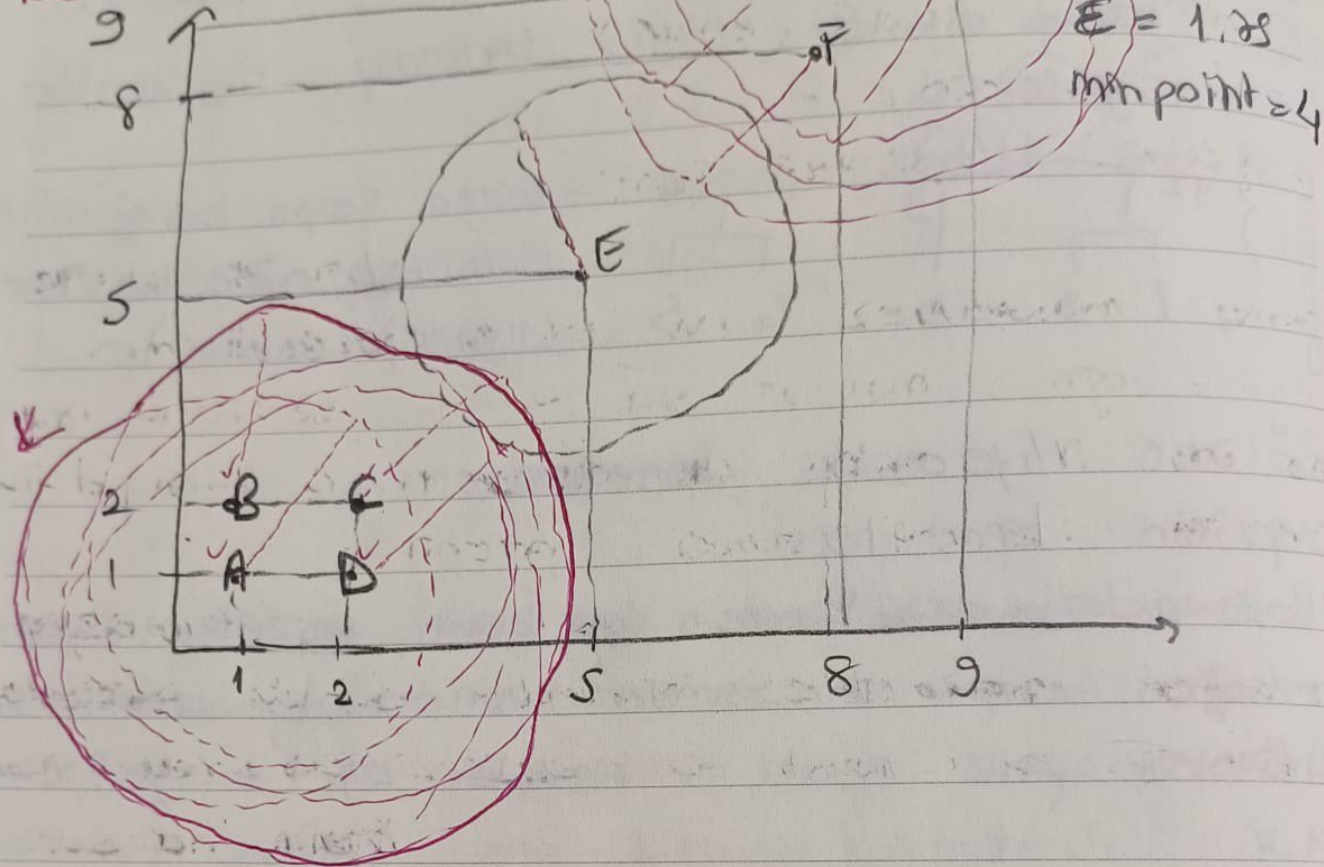 9
8
F
Ɛ = 1.25
minpoint=4
E
5
2
B
C
1
A
D
1
2
5
8
9